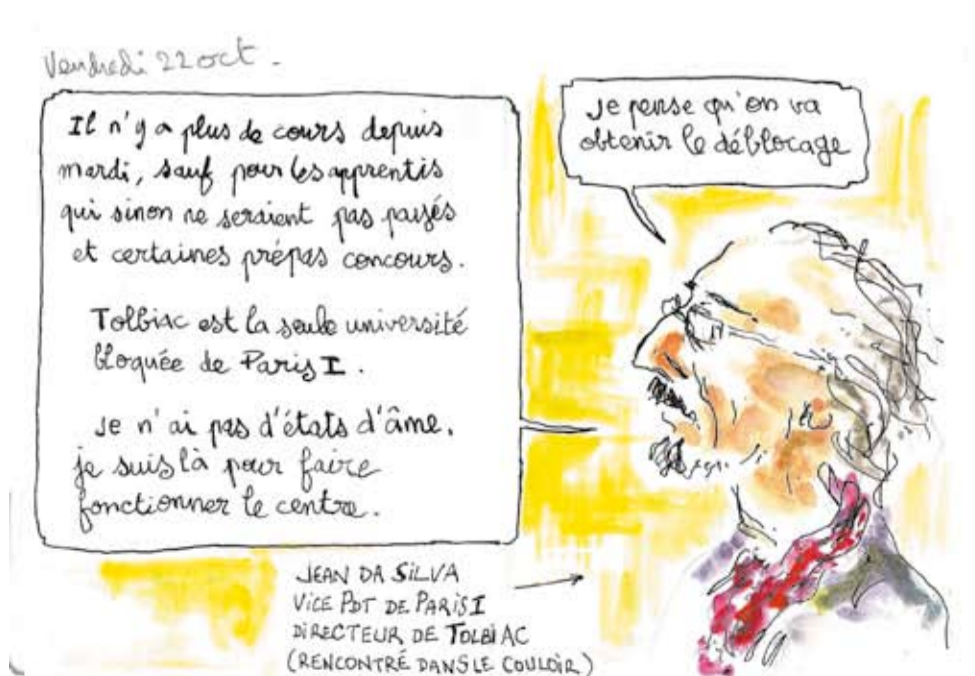 Vendredi 22 oct.
Il n'y a plus de cours depuis
mardi, sauf pour les apprentis
qui sinon ne seraient pas payés
et certaines prépas concours.
Tolbiac est la seule université
bloquée de Paris I.
Je n'ai pas d'états d'âme,
je suis là pour faire
fonctionner le centre.
Je pense qu'on va
obtenir le déblocage
JEAN DA SILVA
VICE PDT DE PARIS I
DIRECTEUR DE TOLBIAC
(RENCONTRÉ DANS LE COULOIR)